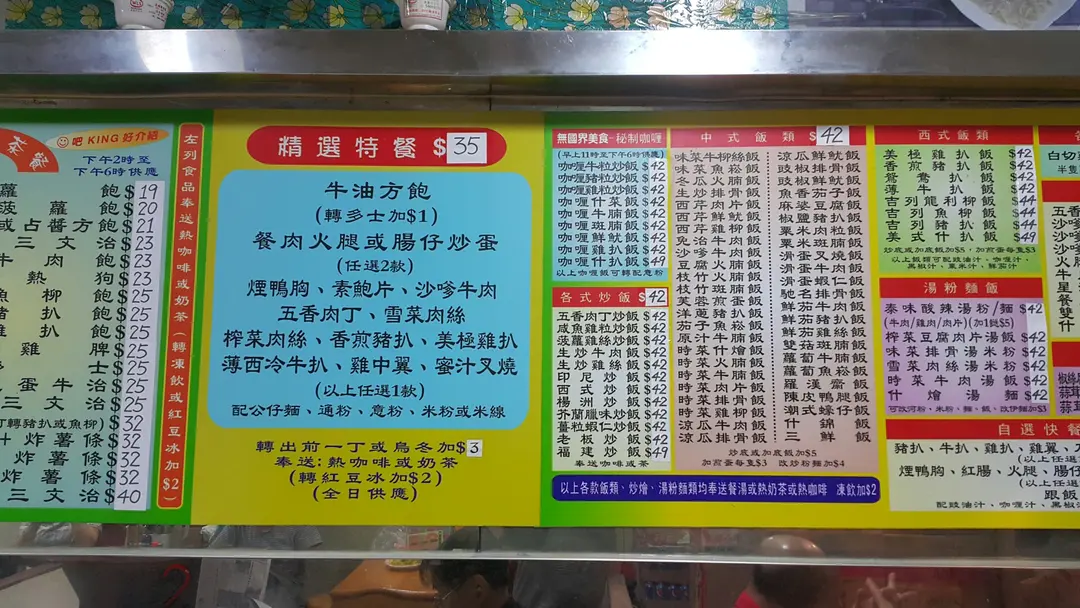 茶餐
吧 KING 好介紹
下午2時至
下午6時供應
蘿 飽 $19
菠 蘿 飽 $20
或占醬方飽 $21
三 文 治 $23
牛 肉 飽 $23
熱 狗 $23
魚 柳 飽 $25
豬 扒 飽 $25
雞 扒 飽 $25
雞 脾 $25
士 $25
蛋 牛 治 $25
三 文 治 $25
轉豬扒或魚柳) $32
炸 薯 條 $32
炸 薯 條 $32
炸 薯 條 $32
三 文 治 $40
左列食品奉送熱咖啡或奶茶(轉凍飲或紅豆冰加$2)
精選特餐 $35
牛油方飽
(轉多士加$1)
餐肉火腿或腸仔炒蛋
(任選2款)
煙鴨胸、素鮑片、沙嗲牛肉
五香肉丁、雪菜肉絲
榨菜肉絲、香煎豬扒、美極雞扒
薄西冷牛扒、雞中翼、蜜汁叉燒
(以上任選1款)
配公仔麵、通粉、意粉、米粉或米線
轉出前一丁或烏冬加$3
奉送:熱咖啡或奶茶
(轉紅豆冰加$2)
(全日供應)
無國界美食-秘制咖喱
(早上11時至下午6時供應)
咖喱牛粒炒飯 $42
咖喱豬粒炒飯 $42
咖喱魚粒炒飯 $42
咖喱什菜飯 $42
咖喱牛腩飯 $42
咖喱斑腩飯 $42
咖喱鮮魷飯 $42
咖喱雞扒飯 $42
咖喱什扒飯 $49
以上咖喱飯可轉配意粉
各式炒飯 $42
五香肉丁炒飯 $42
咸魚雞粒炒飯 $42
菠蘿雞絲炒飯 $42
生炒牛肉飯 $42
生炒雞絲飯 $42
印尼炒飯 $42
西式炒飯 $42
楊洲炒飯 $42
芥蘭臘味炒飯 $42
薑粒蝦仁炒飯 $42
老板炒飯 $42
福建炒飯 $49
奉送咖啡或茶
中式飯類 $42
味菜牛柳絲飯
味菜魚崧飯
冬瓜火腩飯
生炒排骨飯
西芹肉片飯
西芹鮮魷飯
免治牛肉飯
沙嗲牛肉飯
豆腐火腩飯
枝竹火腩飯
枝竹斑腩飯
芙蓉煎蛋飯
洋蔥豬扒飯
茄子魚崧飯
原汁牛腩飯
時菜什燴飯
時菜斑腩飯
時菜牛腩飯
時菜肉片飯
時菜雞柳飯
涼瓜排骨飯
涼瓜牛肉飯
涼瓜鮮魷飯
豉椒鮮魷飯
豉椒排骨飯
魚香茄子飯
麻婆豆腐飯
椒鹽豬扒飯
粟米肉粒飯
粟米斑腩飯
滑蛋叉燒飯
滑蛋牛肉飯
滑蛋蝦仁飯
馳名排骨飯
鮮茄煎蛋飯
鮮茄牛肉飯
鮮茄雞絲飯
雙菇斑腩飯
蘿蔔牛腩飯
蘿蔔魚崧飯
羅漢齋飯
陳皮鴨腿飯
潮式蠔仔飯
什錦飯
三鮮飯
炒底或加底飯加$5
加煎蛋每隻$3 改炒粉麵加$4
以上各款飯類、炒燴、湯粉麵類均奉送餐湯或熱奶茶或熱咖啡 凍飲加$2
西式飯類
美極雞扒飯 $42
香煎豬扒飯 $42
鴛鴦扒飯 $42
薄牛扒飯 $42
吉列龍利柳飯 $44
吉列魚柳飯 $44
吉列豬扒飯 $44
美式什扒飯 $49
炒底或加底飯加$5,加煎蛋每隻$3
以上飯類可配豉油汁、咖喱汁、
黑椒汁、粟米汁、鮮茄汁
湯粉麵飯
泰味酸辣湯粉/麵 $42
(牛肉/雞肉/肉片)(加1餸$5)
榨菜豆腐肉片湯飯 $42
味菜排骨湯米粉 $42
味菜肉絲湯米粉 $42
時菜牛肉湯飯 $42
什燴湯麵 $42
可改河粉、米粉、麵、飯、改伊麵加$3
自選快餐
豬扒、牛扒、雞扒、雞翼、
(以上任選
煙鴨胸、紅腸、火腿、腸仔
(以上任選
跟飯
配豉油汁、咖喱汁、黑椒汁
白切
半隻